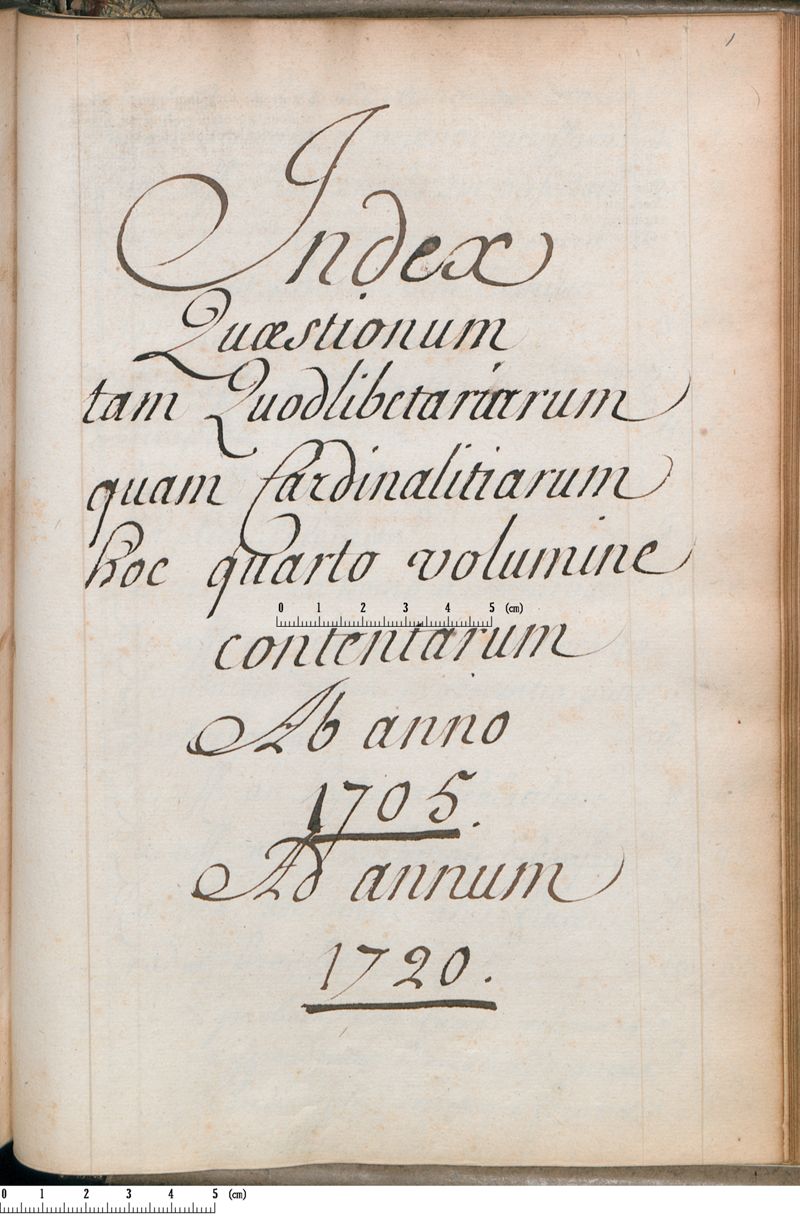 1
Index
Quæstionum
tam Quodlibetariarum
quam Cardinalitiarum
hoc quarto volumine
0 1 2 3 4 5 (cm)
contentarum
Ab anno
1705.
Ad annum
1720.
0 1 2 3 4 5 (cm)